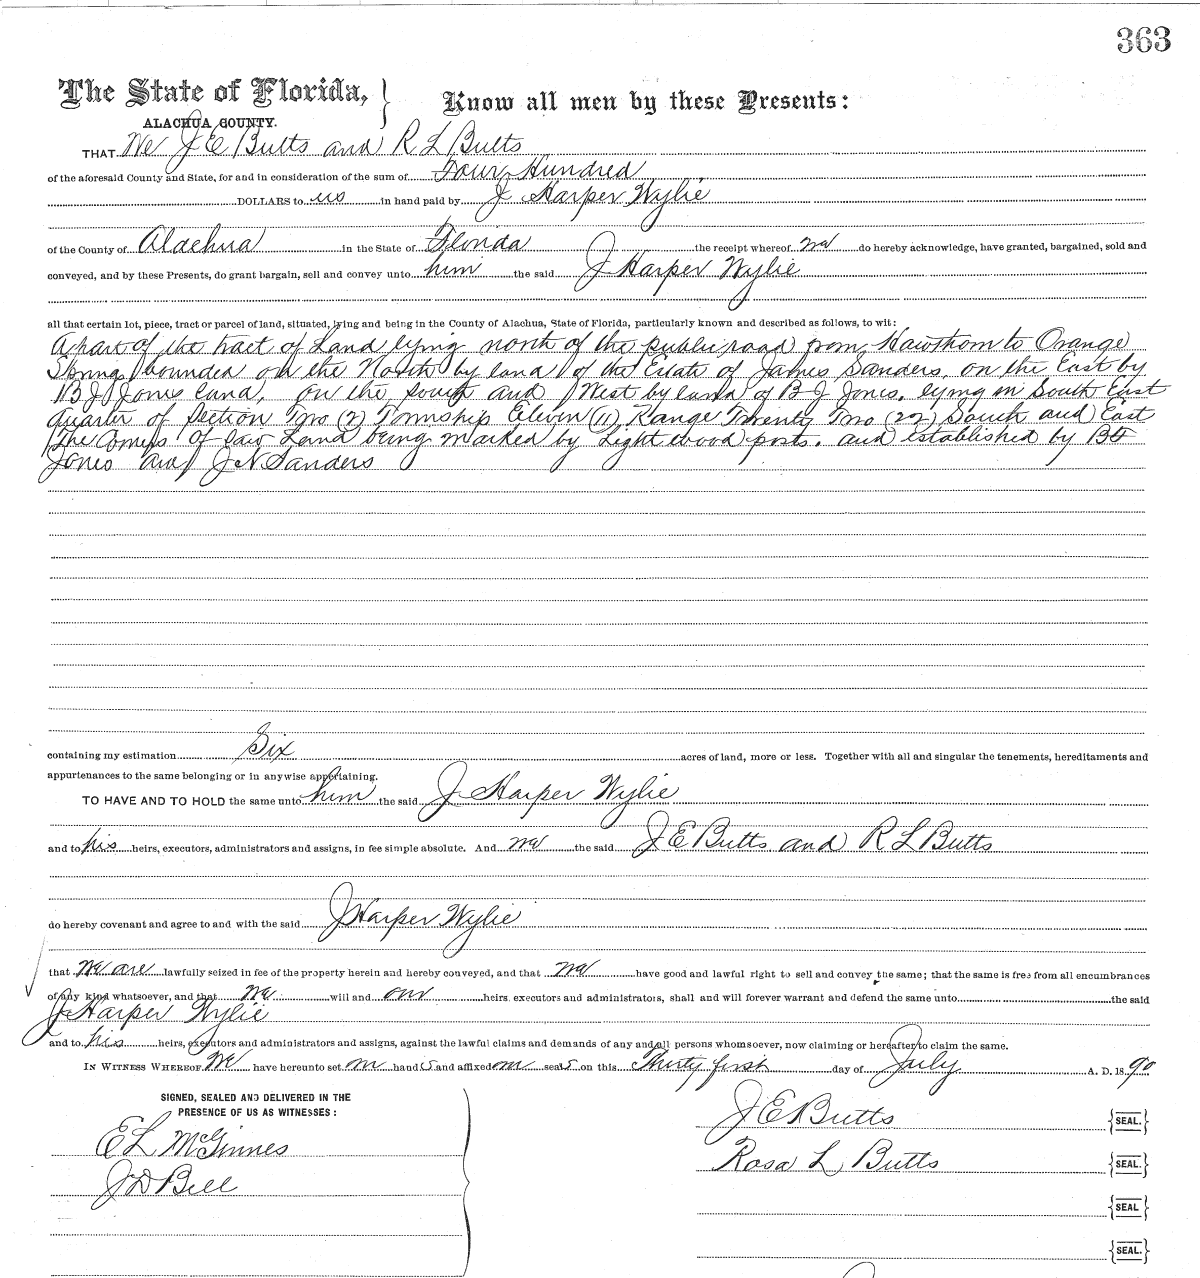 363
The State of Florida, } Know all men by these Presents:
ALACHUA COUNTY.
THAT We J E Butts and R L Butts
of the aforesaid County and State, for and in consideration of the sum of Four Hundred
DOLLARS to us in hand paid by J Harper Wylie
of the County of Alachua in the State of Florida the receipt whereof we do hereby acknowledge, have granted, bargained, sold and
conveyed, and by these Presents, do grant bargain, sell and convey unto him the said J Harper Wylie
all that certain lot, piece, tract or parcel of land, situated, lying and being in the County of Alachua, State of Florida, particularly known and described as follows, to wit:
A part of the tract of Land lying north of the public road from Hawthorn to Orange
Spring bounded on the North by land of the Estate of James Sanders, on the East by
B J Jones land, on the south and West by land of B J Jones. lying in South East
quarter of Section Two (2) Township Eleven (11) Range Twenty Two (22) South and East
The Corners of said Land being marked by Lightwood posts. and established by B J
Jones and J N Sanders
containing my estimation Six acres of land, more or less. Together with all and singular the tenements, hereditaments and
appurtenances to the same belonging or in anywise appertaining.
TO HAVE AND TO HOLD the same unto him the said J Harper Wylie
and to his heirs, executors, administrators and assigns, in fee simple absolute. And we the said J E Butts and R L Butts
do hereby covenant and agree to and with the said J Harper Wylie
that we are lawfully seized in fee of the property herein and hereby conveyed, and that we have good and lawful right to sell and convey the same; that the same is free from all encumbrances
of any kind whatsoever, and that we will and our heirs, executors and administrators, shall and will forever warrant and defend the same unto the said
J Harper Wylie
and to his heirs, executors and administrators and assigns, against the lawful claims and demands of any and all persons whomsoever, now claiming or hereafter to claim the same.
IN WITNESS WHEREOF We have hereunto set our hands and affixed our seals on this Thirty first day of July A. D. 18 90
SIGNED, SEALED AND DELIVERED IN THE
PRESENCE OF US AS WITNESSES:
J E Butts {SEAL.}
E L McGinnes
Rosa L Butts {SEAL.}
J D Bell
{SEAL}
{SEAL.}